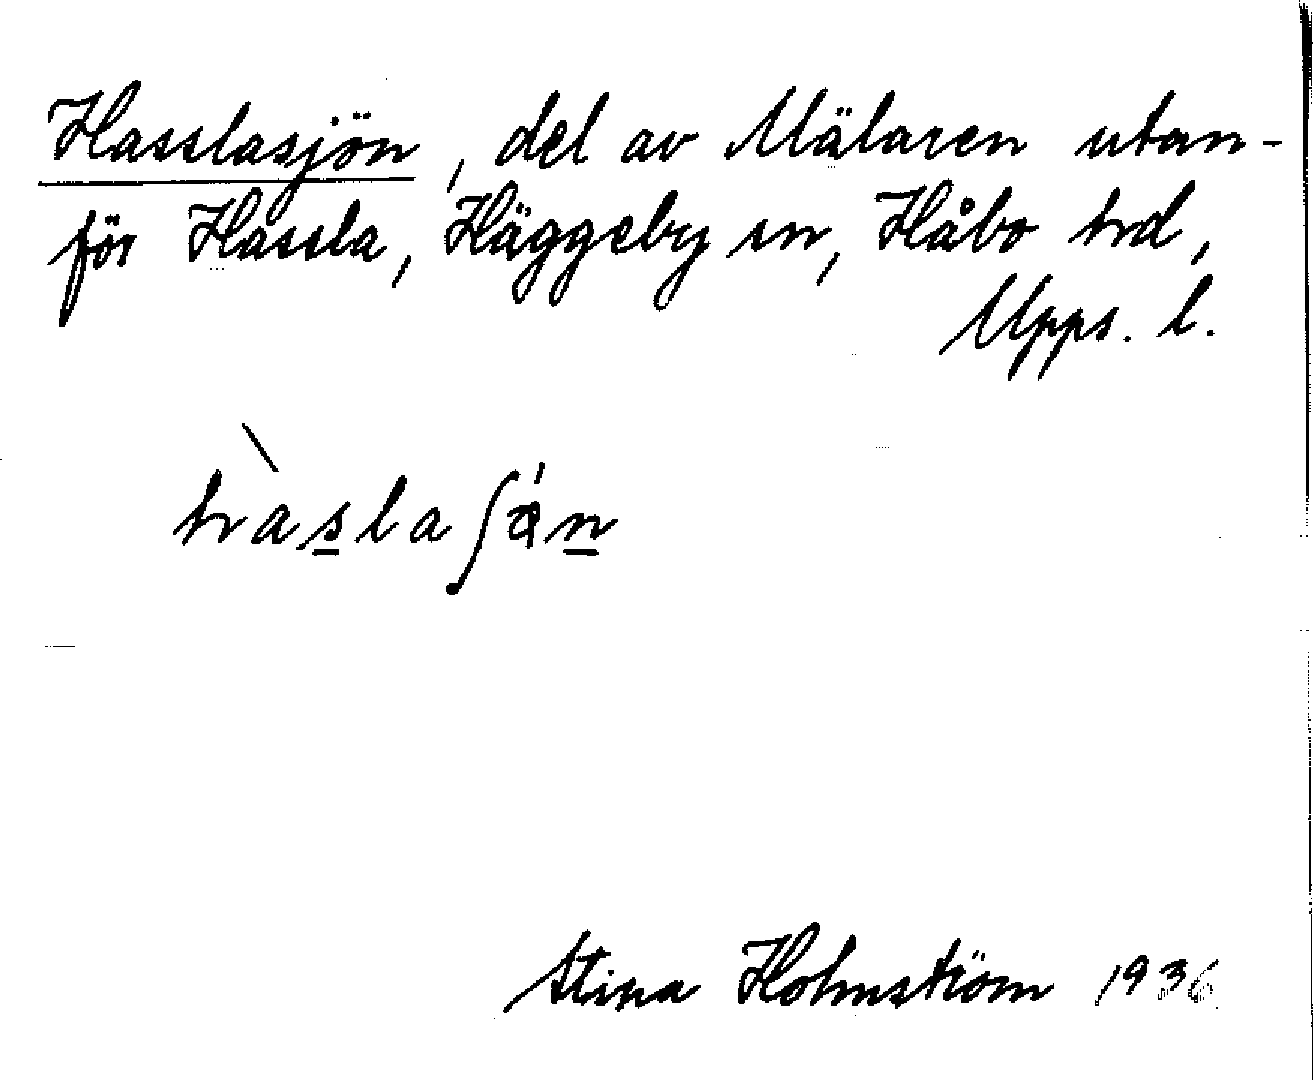 Hasslasjön, del av Mälaren utan-
för Hassla, Häggeby sn, Håbo hd,
Upps. l.
hàslaʃǿn
Stina Holmström 1936